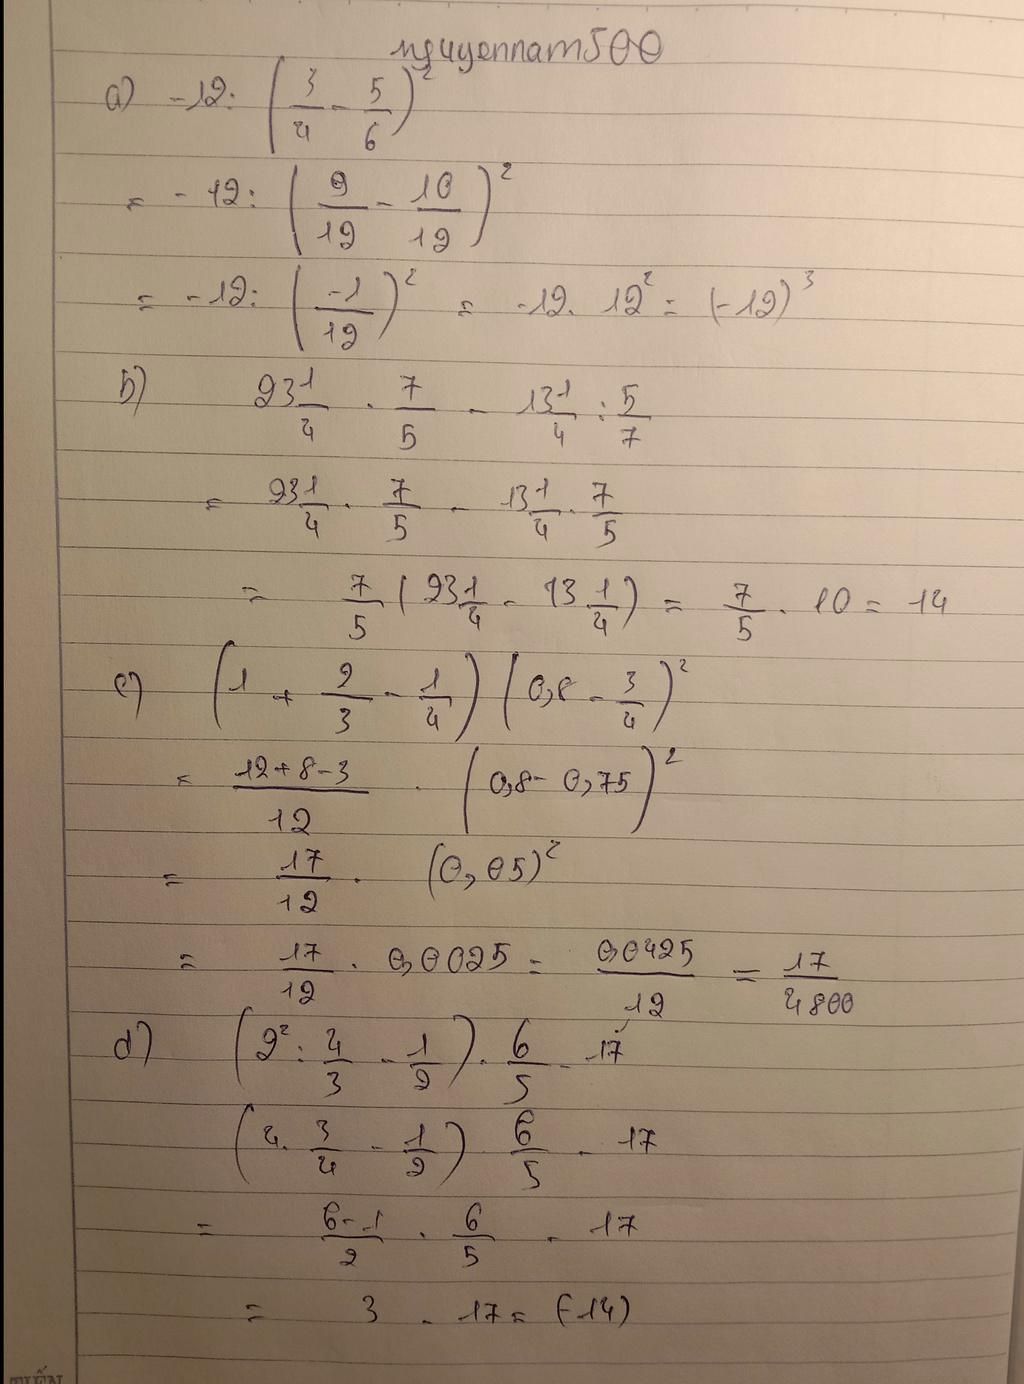 nguyennam500
a) -12: (3/4 - 5/6)²
= -12: (9/12 - 10/12)²
= -12: (-1/12)² = -12. 12² = (-12)³
b) 23 1/4 . 7/5 - 13 1/4 : 5/7
= 23 1/4 . 7/5 - 13 1/4 . 7/5
= 7/5 (23 1/4 - 13 1/4) = 7/5 . 10 = 14
c) (1 + 2/3 - 1/4) (0,8 - 3/4)²
= 12+8-3/12 . (0,8 - 0,75)²
= 17/12 . (0,05)²
= 17/12 . 0,0025 = 0,0425/12 = 17/4800
d) (2² : 4/3 - 1/2) . 6/5 - 17
(4. 3/4 - 1/2) 6/5 - 17
= 6-1/2 . 6/5 - 17
= 3 - 17 = (-14)